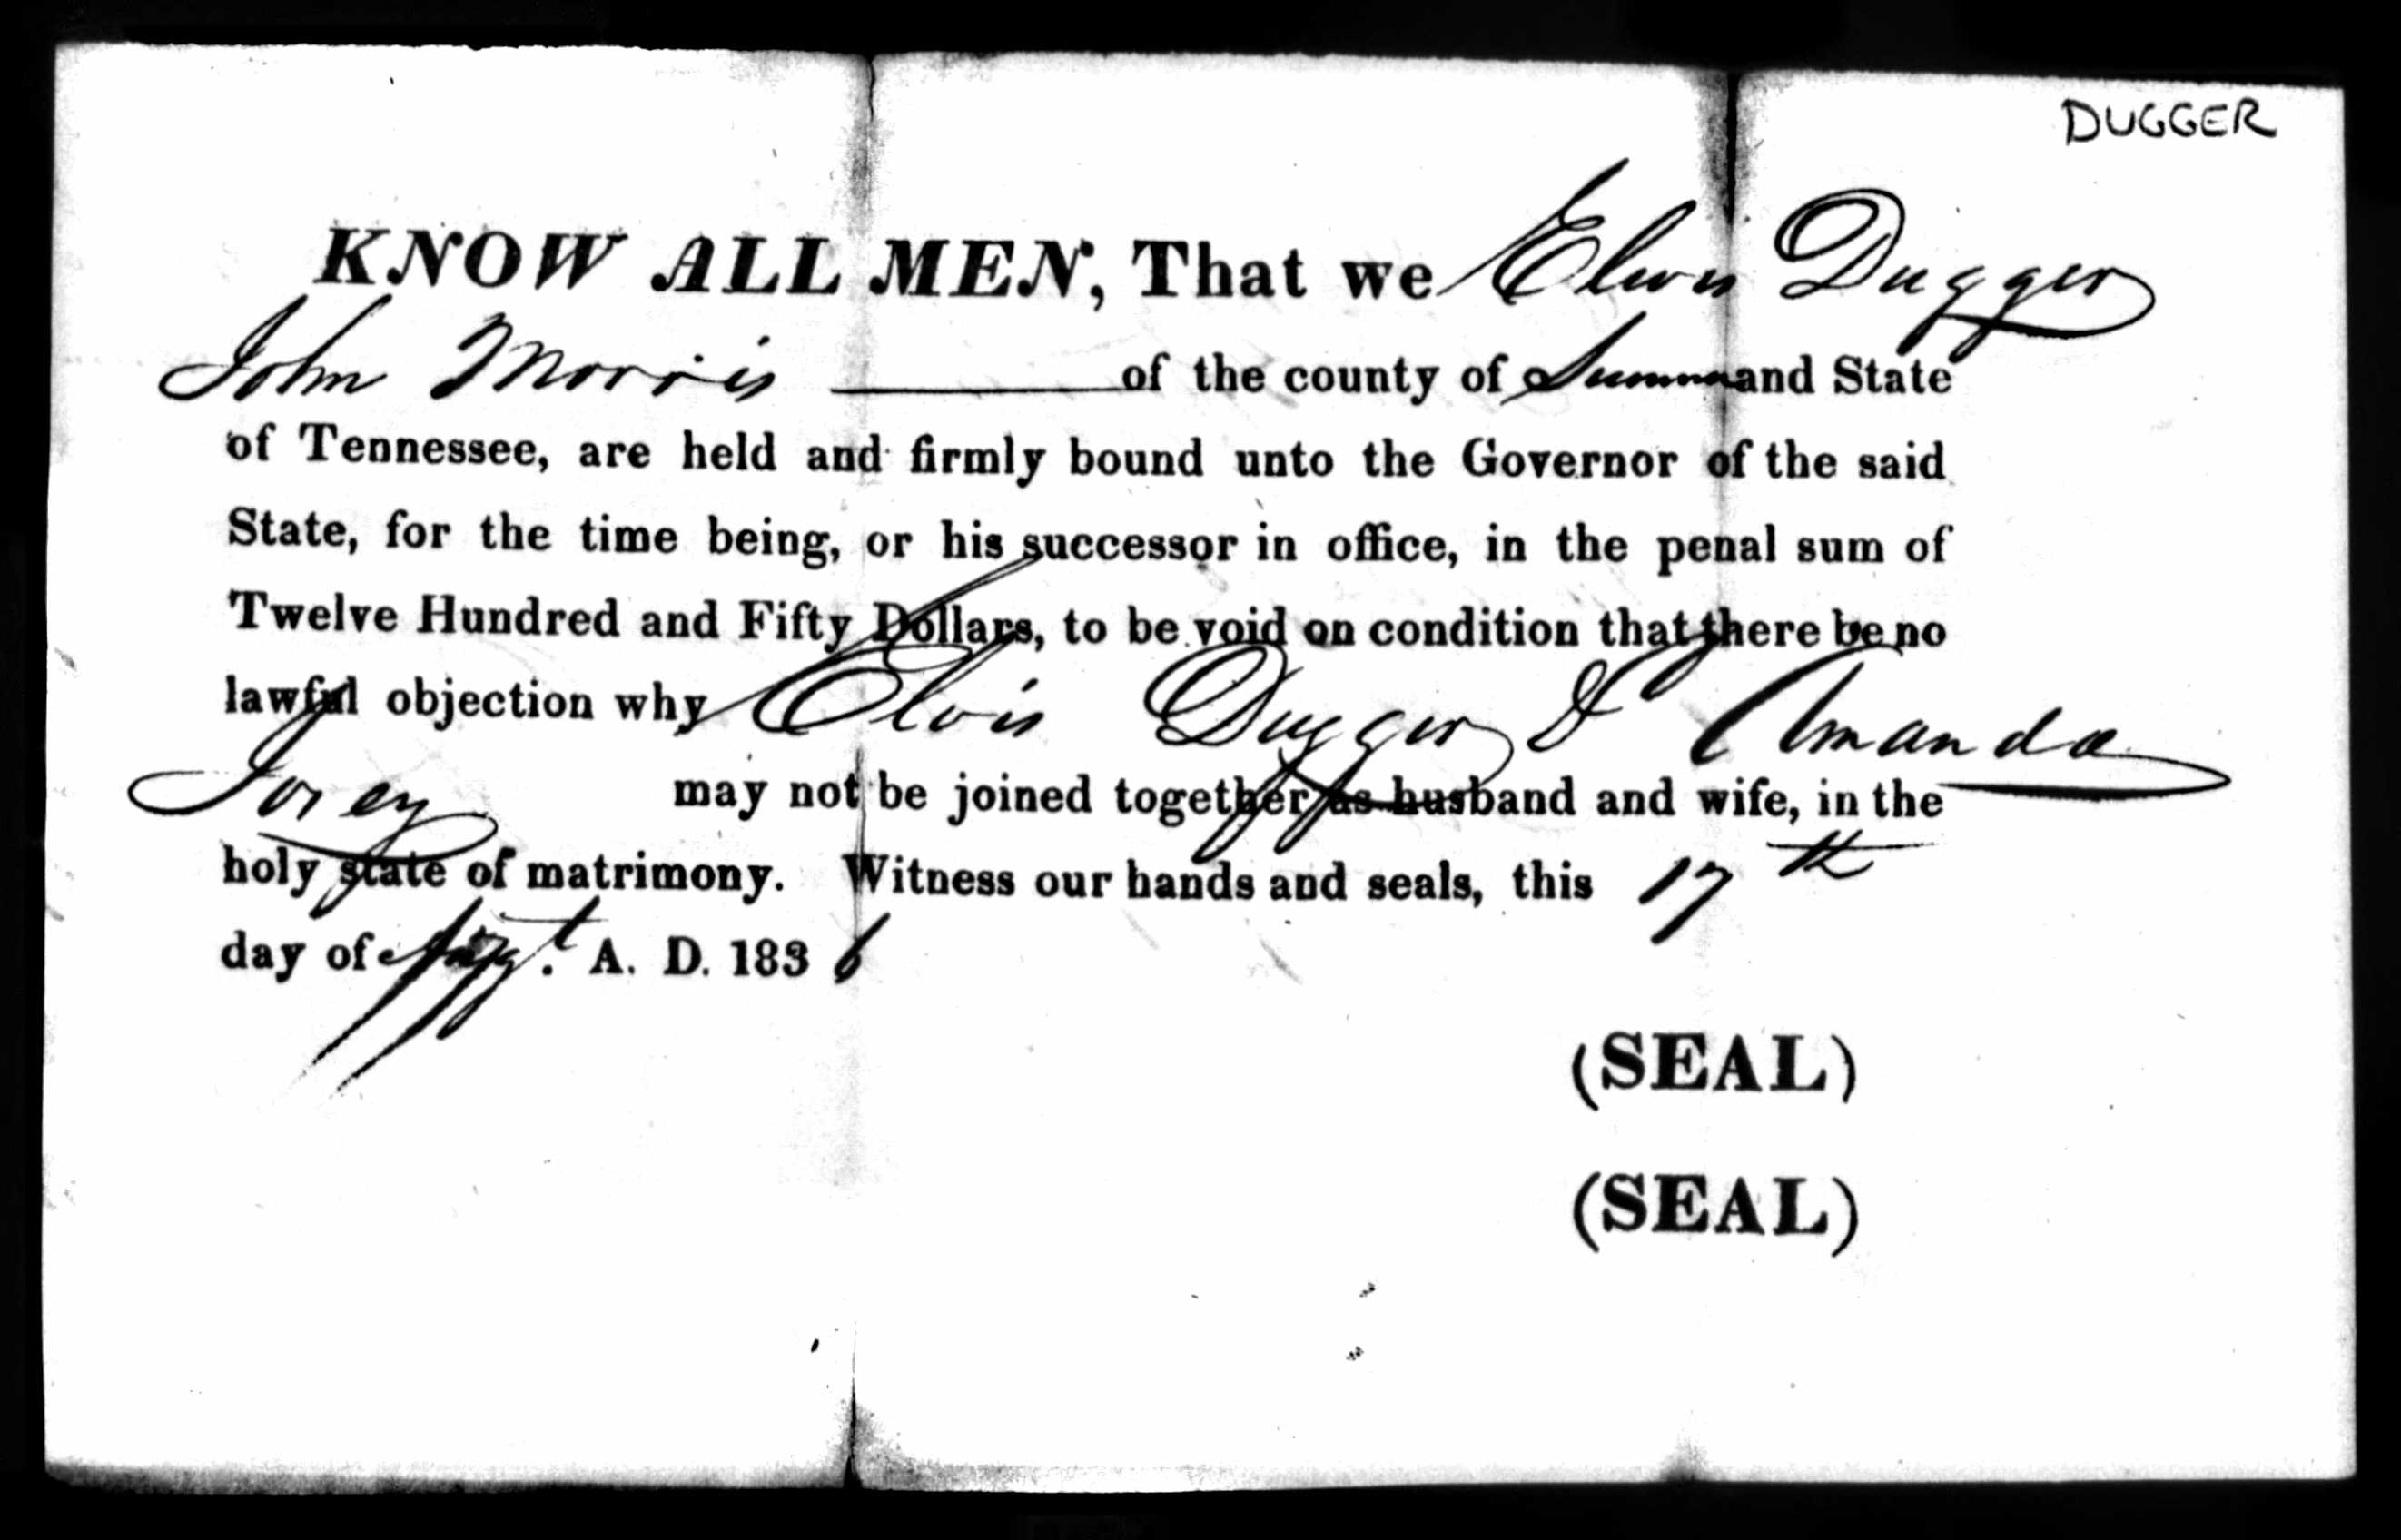 DUGGER
KNOW ALL MEN, That we Elvis Dugger
John Morris of the county of Sumner and State
of Tennessee, are held and firmly bound unto the Governor of the said
State, for the time being, or his successor in office, in the penal sum of
Twelve Hundred and Fifty Dollars, to be void on condition that there be no
lawful objection why Elvis Dugger & Amanda
may not be joined together as husband and wife, in the
holy state of matrimony. Witness our hands and seals, this 17th
day of Augt. A. D. 1836
(SEAL)
(SEAL)